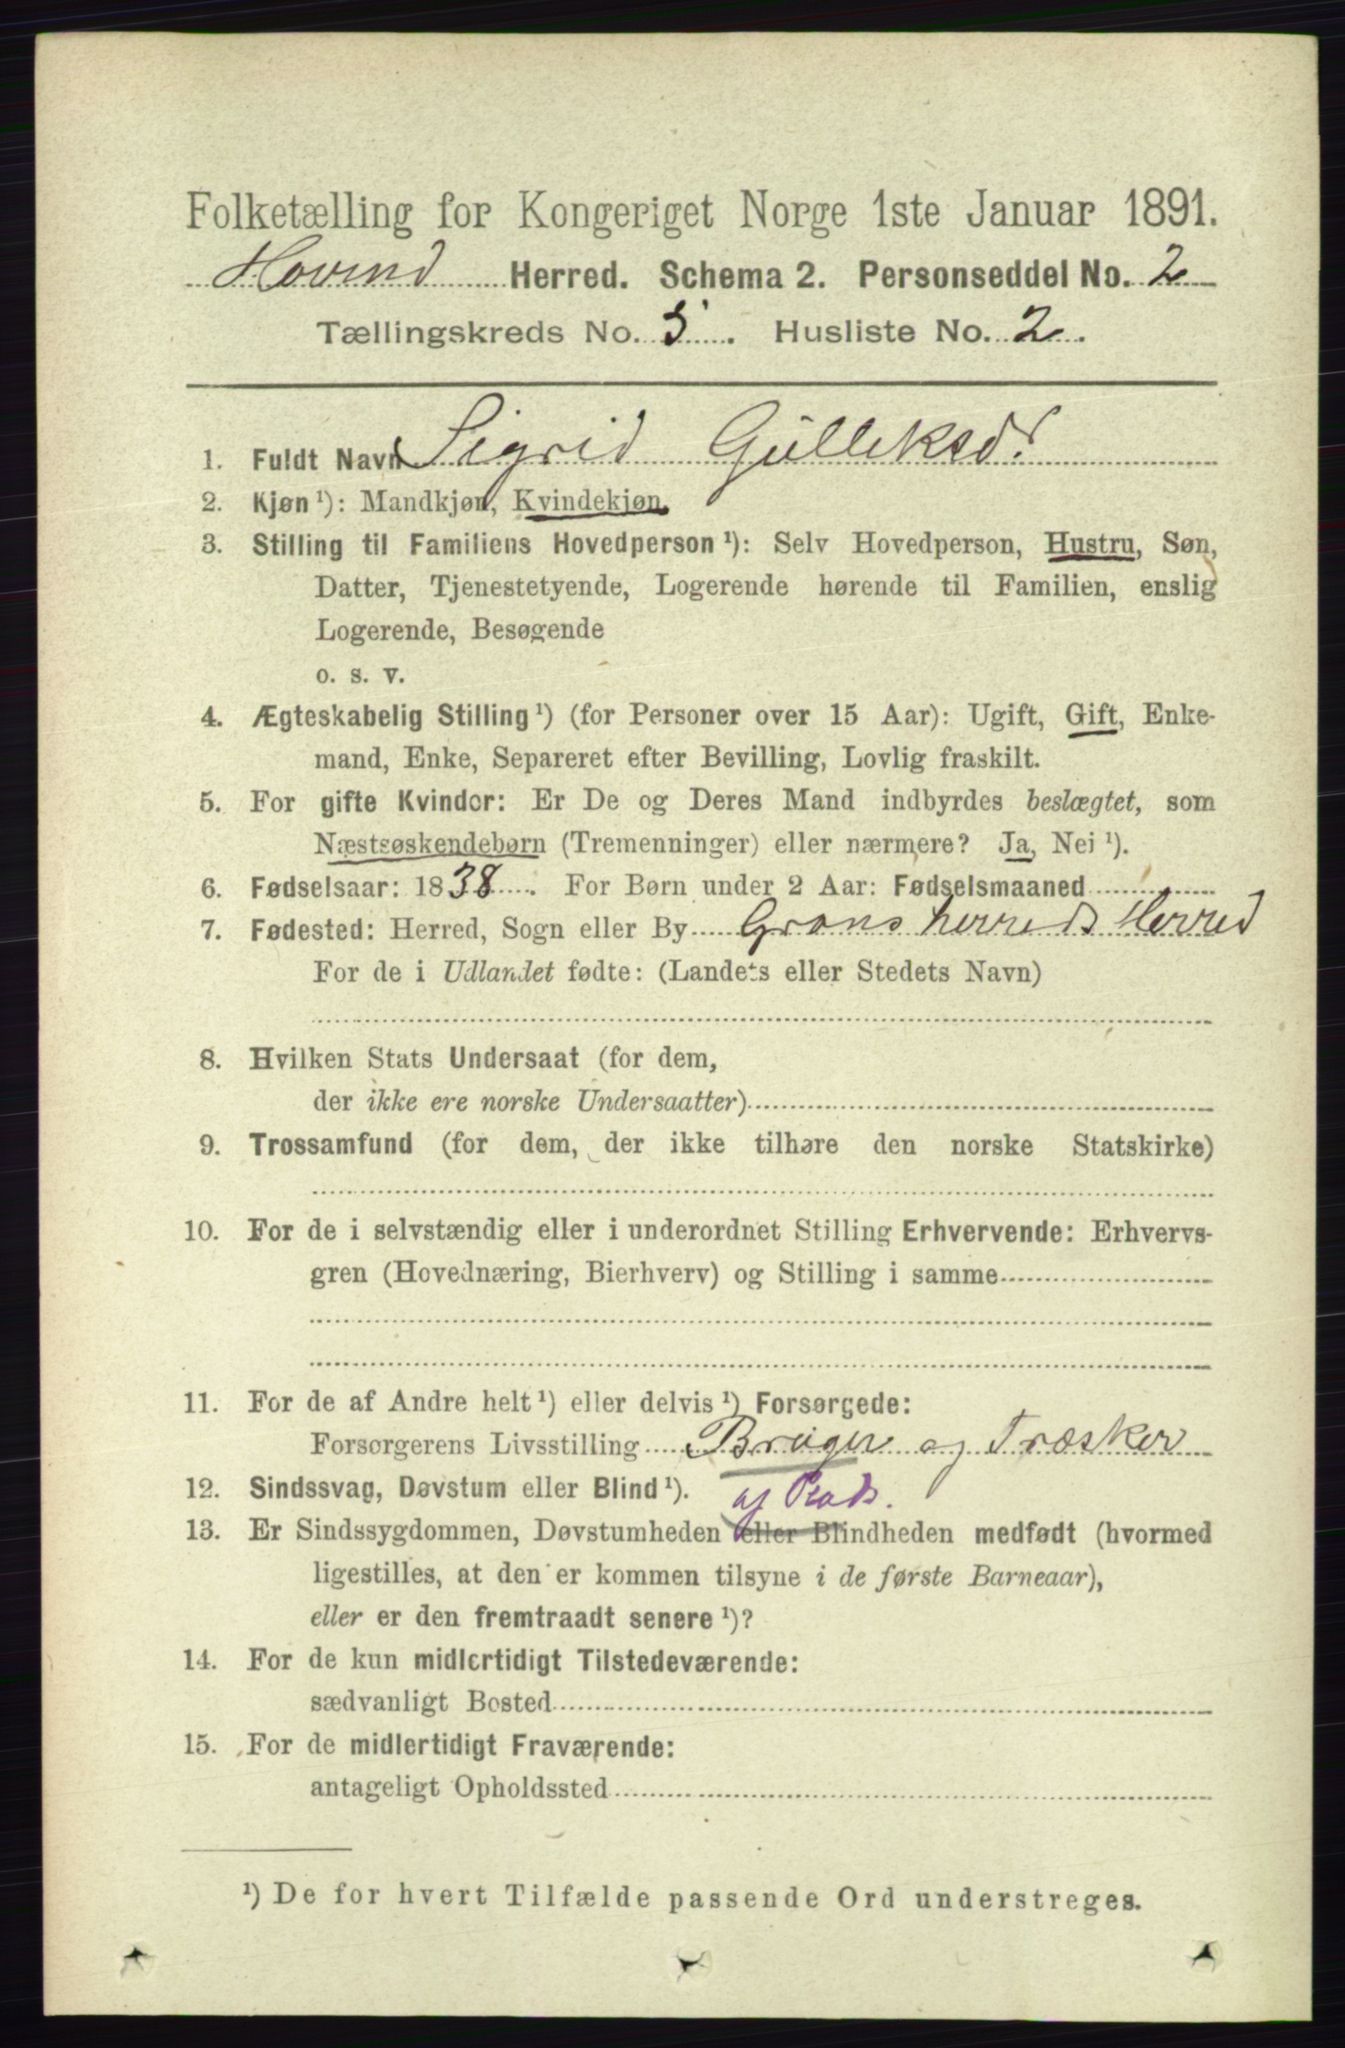 Folketælling for Kongeriget Norge 1ste Januar 1891.
Hovind Herred. Schema 2. Personseddel No. 2
Tællingskreds No. 5. Husliste No. 2.
1. Fuldt Navn Sigrid Gulleksdr
2. Kjøn ¹): Mandkjøn, Kvindekjøn.
3. Stilling til Familiens Hovedperson ¹): Selv Hovedperson, Hustru, Søn,
Datter, Tjenestetyende, Logerende hørende til Familien, enslig
Logerende, Besøgende
o. s. v.
4. Ægteskabelig Stilling ¹) (for Personer over 15 Aar): Ugift, Gift, Enke-
mand, Enke, Separeret efter Bevilling, Lovlig fraskilt.
5. For gifte Kvinder: Er De og Deres Mand indbyrdes beslægtet, som
Næstsøskendebørn (Tremenninger) eller nærmere? Ja, Nei ¹).
6. Fødselsaar: 1838. For Børn under 2 Aar: Fødselsmaaned
7. Fødested: Herred, Sogn eller By Gransherreds Herred
For de i Udlandet fødte: (Landets eller Stedets Navn)
8. Hvilken Stats Undersaat (for dem,
der ikke ere norske Undersaatter)
9. Trossamfund (for dem, der ikke tilhøre den norske Statskirke)
10. For de i selvstændig eller i underordnet Stilling Erhvervende: Erhvervs-
gren (Hovednæring, Bierhverv) og Stilling i samme
11. For de af Andre helt ¹) eller delvis ¹) Forsørgede:
Forsørgerens Livsstilling Brüger og Træsker
12. Sindssvag, Døvstum eller Blind ¹). af Plads.
13. Er Sindssygdommen, Døvstumheden eller Blindheden medfødt (hvormed
ligestilles, at den er kommen tilsyne i de første Barneaar),
eller er den fremtraadt senere ¹)?
14. For de kun midlertidigt Tilstedeværende:
sædvanligt Bosted
15. For de midlertidigt Fraværende:
antageligt Opholdssted
¹) De for hvert Tilfælde passende Ord understreges.